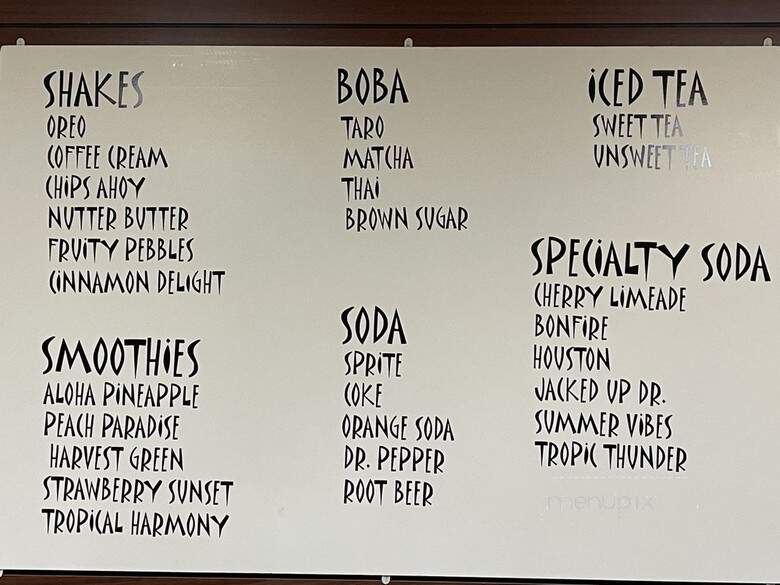 SHAKES
OREO
COFFEE CREAM
CHiPS AHOY
NUTTER BUTTER
FRUiTY PEBBLES
CiNNAMON DELiGHT
SMOOTHiES
ALOHA PiNEAPPLE
PEACH PARADiSE
HARVEST GREEN
STRAWBERRY SUNSET
TROPiCAL HARMONY
BOBA
TARO
MATCHA
THAi
BROWN SUGAR
SODA
SPRiTE
COKE
ORANGE SODA
DR. PEPPER
ROOT BEER
iCED TEA
SWEET TEA
UNSWEET TEA
SPECiALTY SODA
CHERRY LiMEADE
BONFiRE
HOUSTON
JACKED UP DR.
SUMMER ViBES
TROPiC THUNDER
menupix